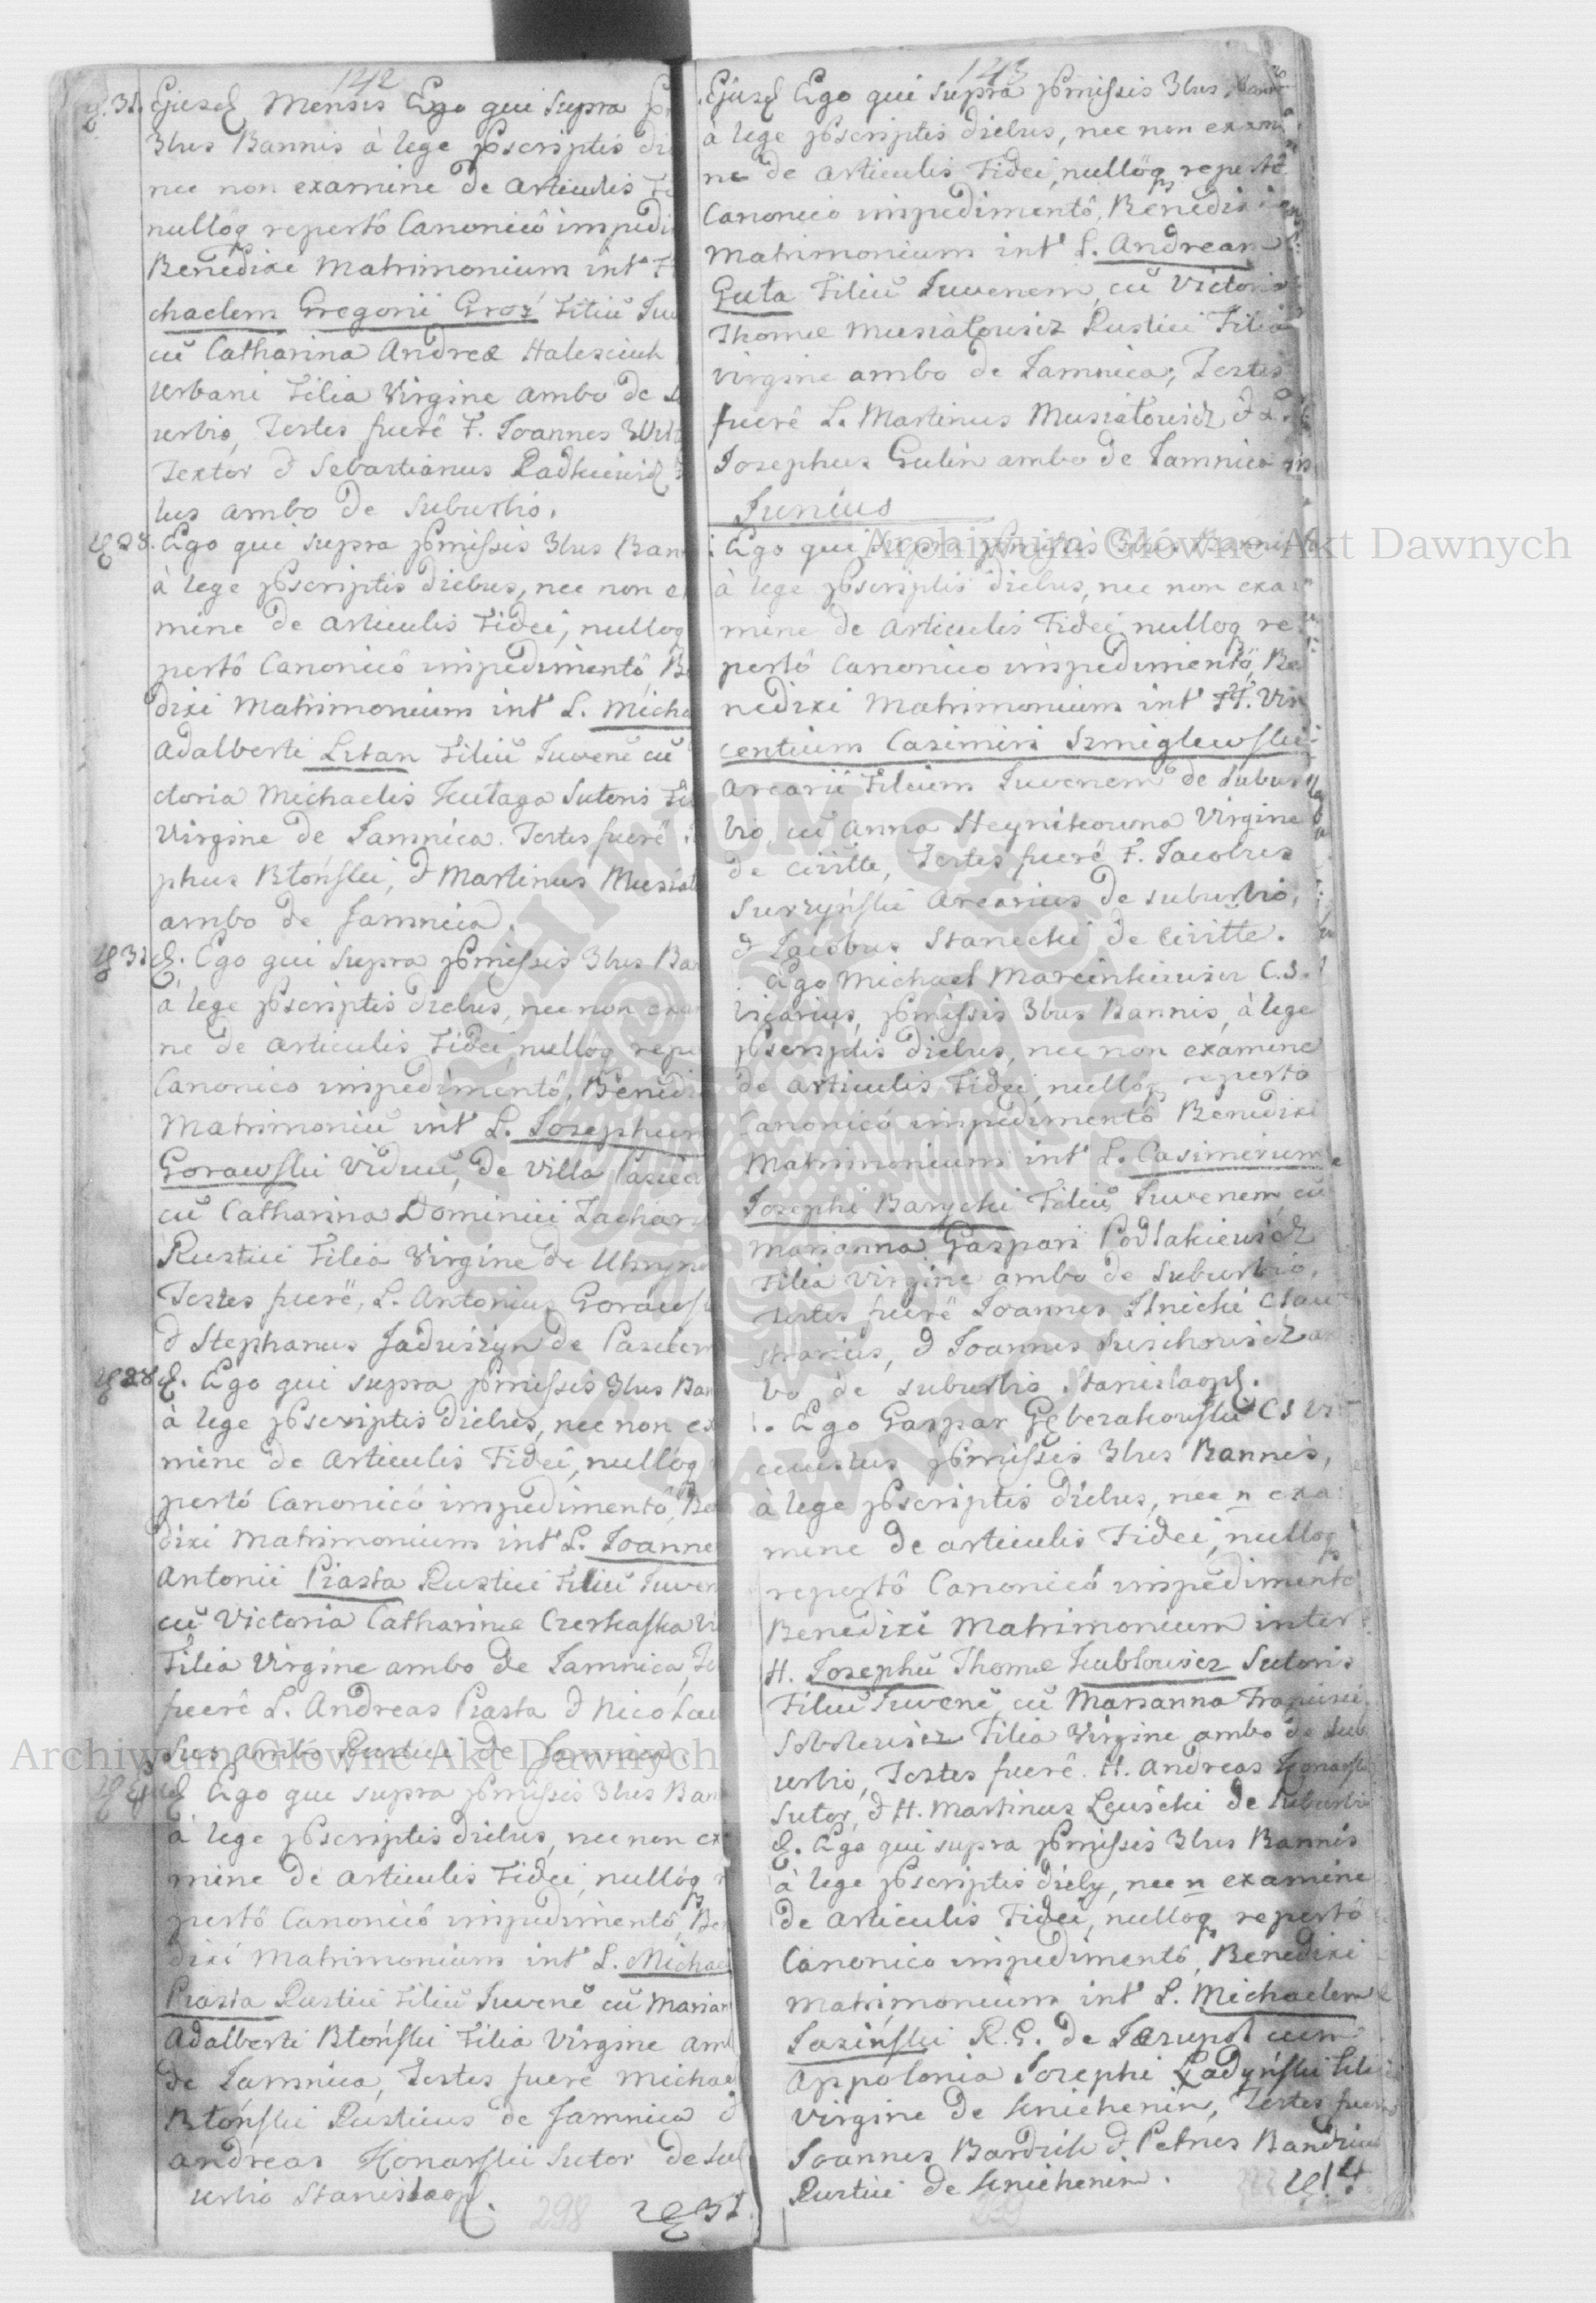 142
Ejusd Mensis Ego qui supra
3bus Bannis à lege pscriptis
nec non examine de Articulis
nulloq repertô Canonicô impedi
Benedixi Matrimonium int
chaelem Gregorii Groź Filiũ Juv
cũ Catharina Andreæ
Urbani Filia Virgine ambo de
urbio, Testes fuerê F. Joannes
Textor & Sebastianus
lus ambo de suburbio.
28. Ego qui supra pmissis 3bus Ban
à lege pscriptis diebus, nec non e
mine de Articulis Fidei, nulloq
pertô Canonicô impedimentô, Be
dixi Matrimonium int L. Micha
Adalberti Litan Filiũ Juvenẽ cũ
ctoria Michaelis Kutaga Sutoris Fi
Virgine de Jamnica. Testes fuerê
phus Błoński, & Martinus Musiał
ambo de Jamnica.
31 Ego qui supra pmissis 3bus Ba
à lege pscriptis diebus, nec non exa
ne de Articulis Fidei, nulloq repe
Canonico impedimentô, Benedi
Matrimoniũ int L. Josephum
Gorawski Viduũ, de Villa
cũ Catharina Dominici Zachar
Rustici Filia Virgine de Uhryn
Testes fuerê, L. Antonius Gorawsk
& Stephanus Jadwiszyn de
28 Ego qui supra pmissis 3bus Ban
à lege pscriptis diebus, nec non ex
mine de Articulis Fidei, nulloq
pertô Canonicô impedimentô, Be
dixi Matrimonium int L. Joanne
Antonii Piasta Rustici Filiũ Juven
cũ Victoria Catharinæ Czerkaska
Filia Virgine ambo de Jamnica,
fuerê L. Andreas Piasta & Nicolau
ambo Rustici de Jamnica.
Ego qui supra pmissis 3bus Ban
à lege pscriptis diebus, nec non ex
mine de Articulis Fidei, nulloq
pertô Canonicô impedimentô, Be
dixi Matrimonium int L. Michae
Piasta Rustici Filiũ Juvenẽ cũ Marian
Adalberti Błoński Filia Virgine am
de Jamnica, Testes fuerê Michae
Błoński Rusticus de Jamnica &
Andreas Konarski Sutor de Sub
urbio Stanislaop
298
31
143
Ejusd Ego qui supra pmissis 3bus
à lege pscriptis diebus, nec non exami
ne de Articulis Fidei, nulloq repertô
Canonico impedimentô, Benedixi
Matrimonium int L. Andream
Guta Filiũ Juvenem, cũ Victoria
Thomæ Musiałowicz Rustici Filia
Virgine ambo de Jamnica, Testes
fuerê L. Martinus Musiałowicz & L.
Josephus Gulin ambo de Jamnica
Junius
Ego qui supra pmissis 3bus Bannis
à lege pscriptis diebus, nec non exa
mine de Articulis Fidei, nulloq re
pertô Canonico impedimentô, Be
nedixi Matrimonium int F. Vin
centium Casimiri Szmiglewski
Arcarii Filium Juvenem de Subur
bio cũ Anna Heynikowna Virgine
de Civitte, Testes fuerê F. Jacobus
Surzyński Arcarius de suburbio,
& Jacobus Stanecki de Civitte.
Ego Michael Marcinkiewicz C.S.
Vicarius, pmissis 3bus Bannis, à lege
pscriptis diebus, nec non examine
de Articulis Fidei, nulloq reperto
Canonicô impedimentô Benedixi
Matrimonium int L. Casimirum
Josephi Barycki Filiũ Juvenem, cũ
Marianna Gaspari Podłakiewicz
Filia Virgine ambo de Suburbio,
Testes fuerê Joannes Ilnicki Clau
strarius, & Joannes am
bo de suburbio Stanislaop.
Ego Gaspar Gębczakowski CS Vi
custus pmissis 3bus Bannis,
à lege pscriptis diebus, nec n exa
mine de articulis Fidei, nulloq
repertô Canonicô impedimentô
Benedixi Matrimonium inter
H. Josephũ Thomæ Kubłowicz Sutoris
Filiũ Juvenẽ, cũ Marianna Francisci
Filia Virgine ambo de Sub
urbio, Testes fuerê. H. Andreas Konarski
Sutor, & H. Martinus de Suburbio
Ego qui supra pmissis 3bus Bannis
à lege pscriptis dieby, nec n examine
de Articulis Fidei, nulloq repertô
Canonico impedimentô, Benedixi
Matrimonium int L. Michaelem
Jasiński R. G. de Jezupol cum
Appolonia Josephi Ładyński Filia
Virgine de Knichenin, Testes fuerê
Joannes Bardzik & Petrus
Rustici de Knichenin.
14
Archiwum Główne Akt Dawnych
Archiwum Główne Akt Dawnych
ARCHIWUM GŁÓWNE AKT DAWNYCH